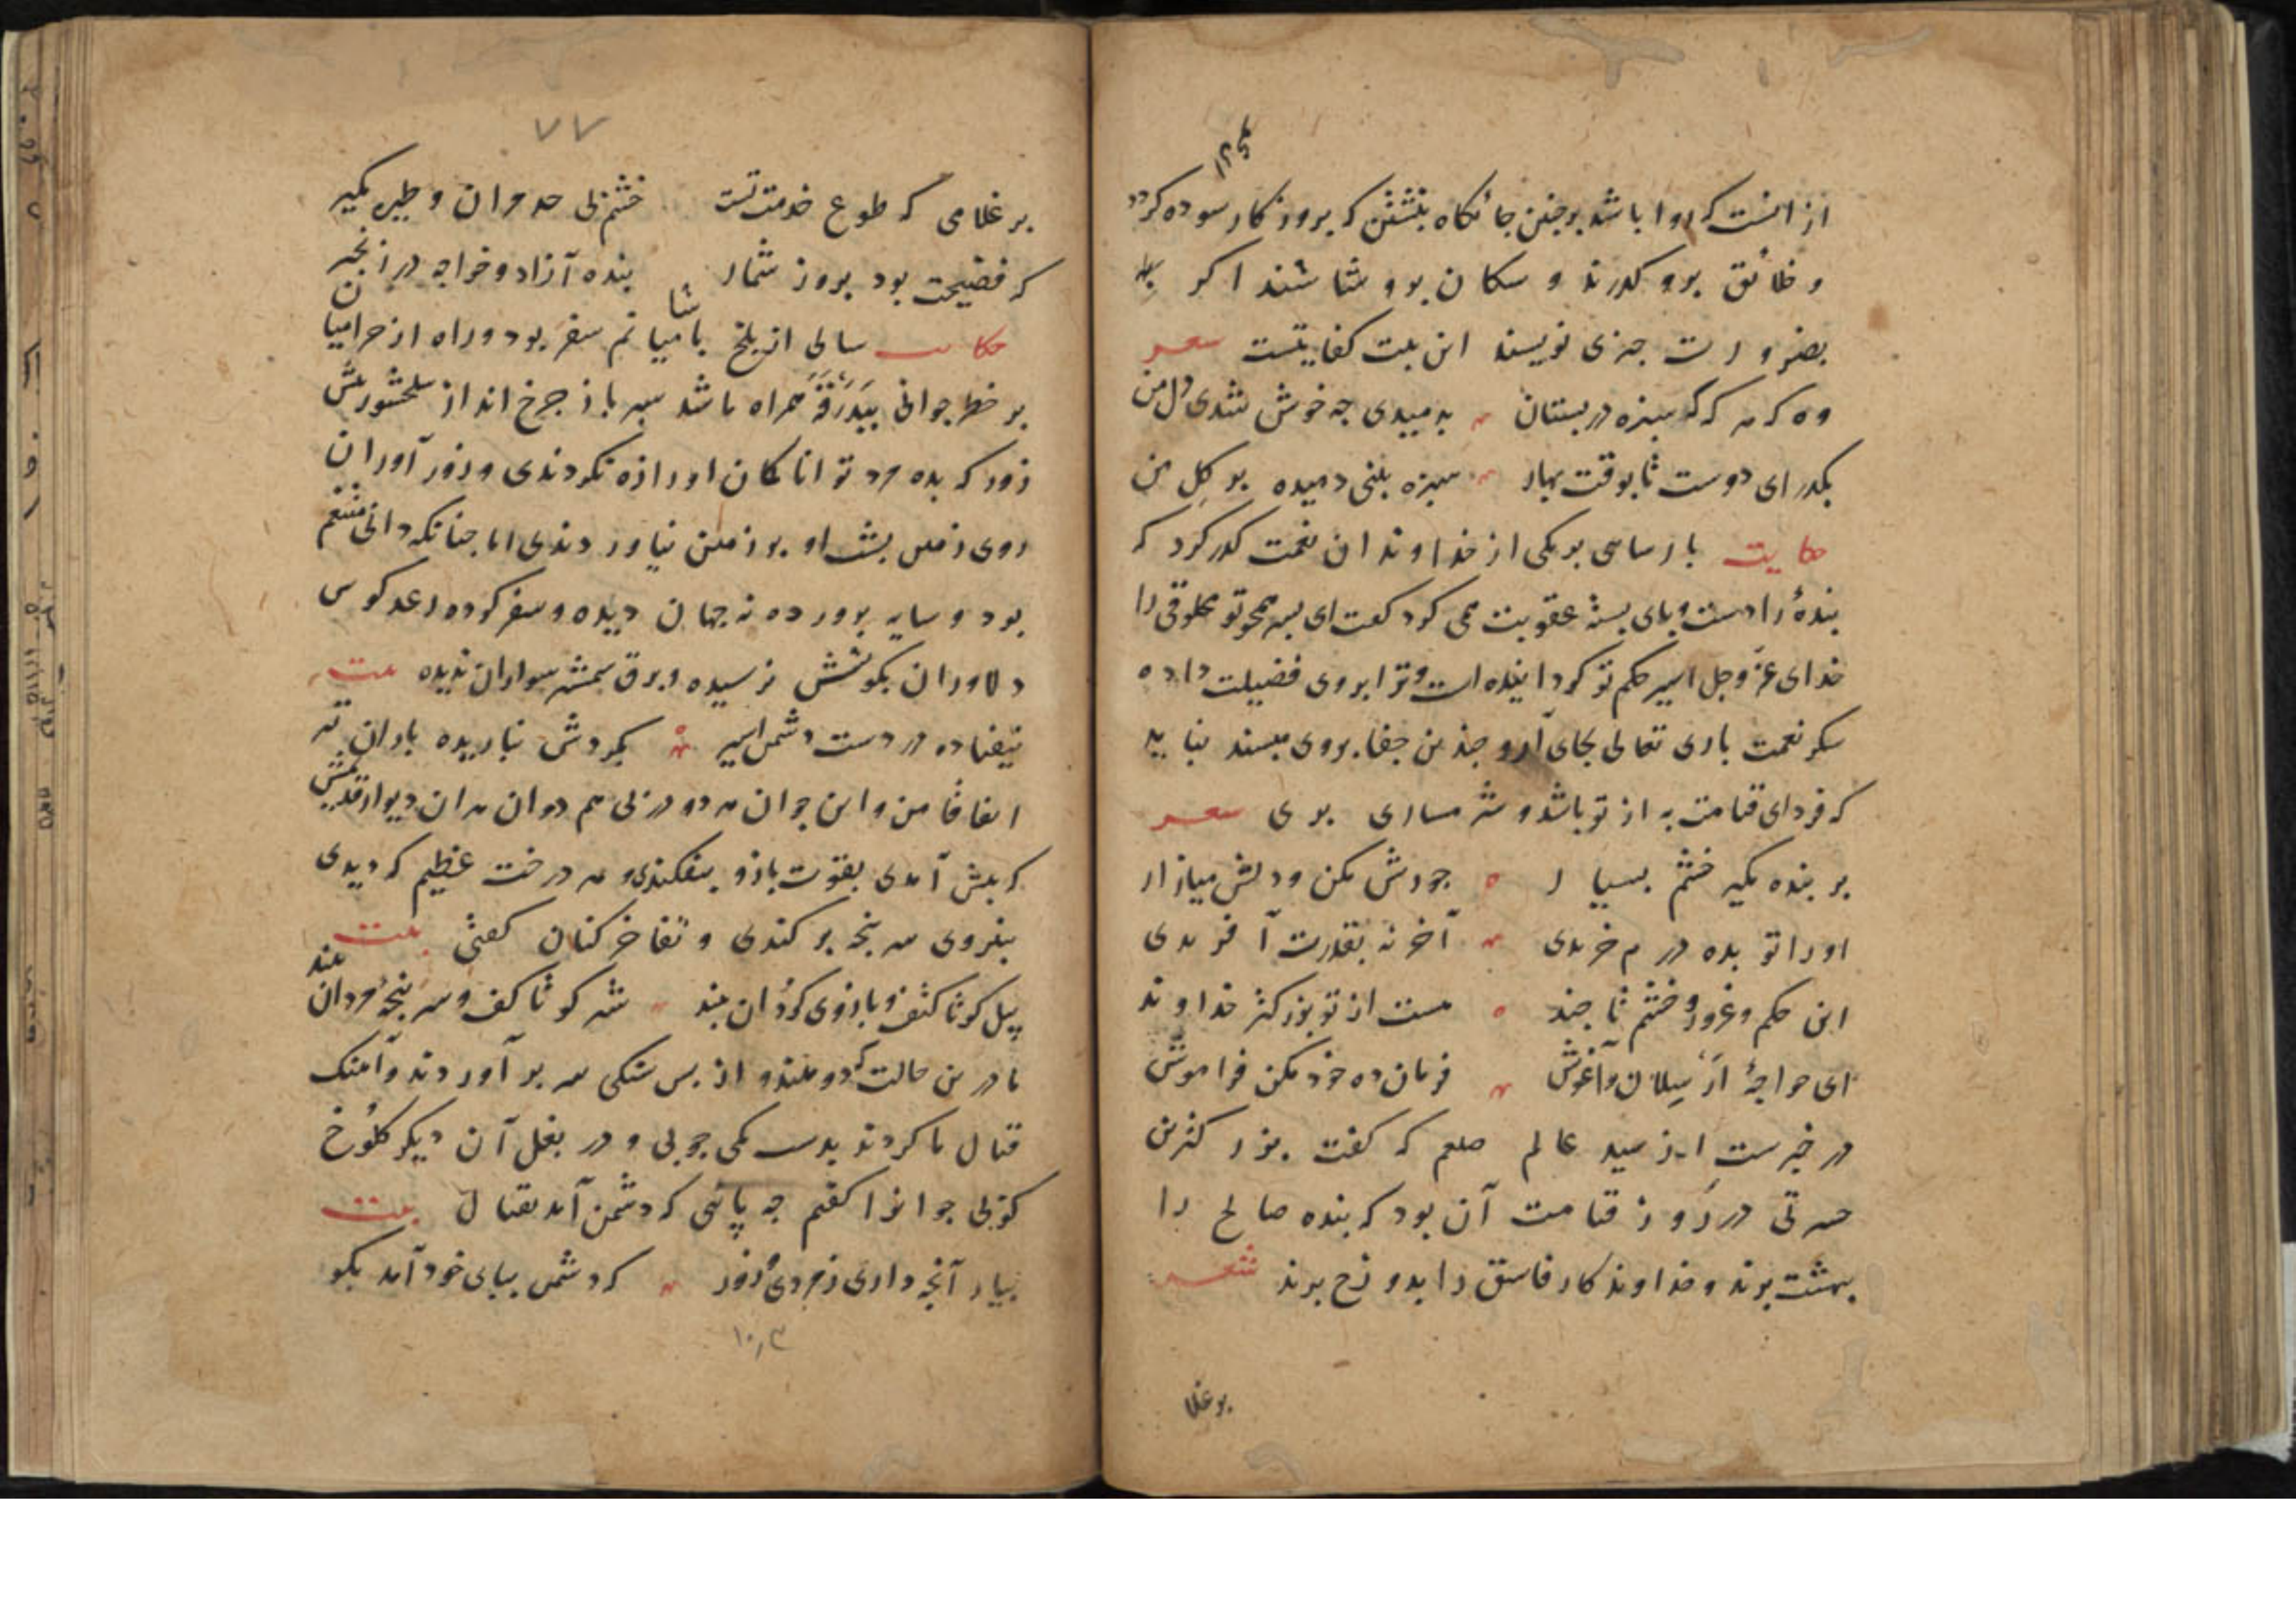 از انست که روا باشد بر جنین جائکاه بنشتن که بروزکار سوده کردد
و خلائق برو کذرند و سکان برو شاشند اکر
بضرورت جیزی نویسند این بیت کفایتست شعر
وه که هر که که سبزه در بستان بدمیدی جه خوش شدی دل من
بکذر ای دوست تا بوقت بهار سبزه بینی دمیده بر کل من
حکایت بارسایی بر یکی از خداوندان نعمت کذر کرد که
بندۀ را دست و بای بسته عقوبت می کرد کفت ای بسر همجو تو مخلوقی را
خدای عز و جل اسیر حکم تو کردانیده است و ترا بر وی فضیلت داده
شکر نعمت باری تعالی بجای آر و جندین جفا بر وی مبسند نباید
که فردای قیامت به از تو باشد و شرمساری بری شعر
بر بنده مکیر خشم بسیار جورش مکن و دلش میازار
او را تو بده درم خریدی آخر نه بقدرت آفریدی
این حکم و غرور و خشم تا جند هست از تو بزرکتر خداوند
ای خواجۀ ارسلان و آغوش فرمان ده خود مکن فراموش
در خبرست از سید عالم صلعم که کفت بزرکترین
حسرتی در روز قیامت آن بود که بنده صالح را
بهشت برند و خداوندکار فاسق را بدوزخ برند شعر
بر غلا
۷۷
بر غلامی که طوع خدمت تست خشم بی حد مران و طیره مکیر
که فضیحت بود بروز شمار بنده آزاد و خواجه در زنجیر
حکایت سالی از بلخ با میانم سفر بود و راه از حرامیان
بر خطر جوانی ببدرقه همراه ما شد سبر باز جرخ انداز سلحشور بیش
زور که بده مرد توانا کمان او را زه نکردندی و زور آوران
روی زمین بشت او بر زمین نیاوردندی اما جنانکه دانی متنعم
بود و سایه برورده نه جهان دیده و سفر کرده رعد کوس
دلاوران بکوشش نرسیده و برق شمشیر سواران ندیده بیت
نیفتاده در دست دشمن اسیر بکردش نباریده باران تیر
اتفاقا من و این جوان هر دو در بی هم دوان هر ان دیوار قدیمش
که بیش آمدی بقوت بازو بیفکندی و هر درخت عظیم که دیدی
بنیروی سر بنجه بر کندی و تفاخر کنان کفتی بیت
پیل کو تا کتف و بازوی کردان بیند شیر کو تا کف و سر بنجه مردان بیند
ما درین حالت که دو هندو از بس سنکی سر بر آوردند و آهنک
قتال ما کردند بدست یکی جوبی و در بغل آن دیکر کلوخ
کوبی جوانرا کفتم جه پائی که دشمن آمد بقتال بیت
بیار آنجه داری ز مردی و زور که دشمن ببای خود آمد بکور